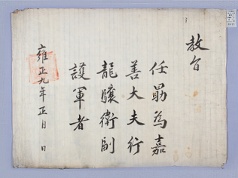 教旨
任勗為嘉
善大夫行
龍驤衛副
護軍者
雍正九年正月 日